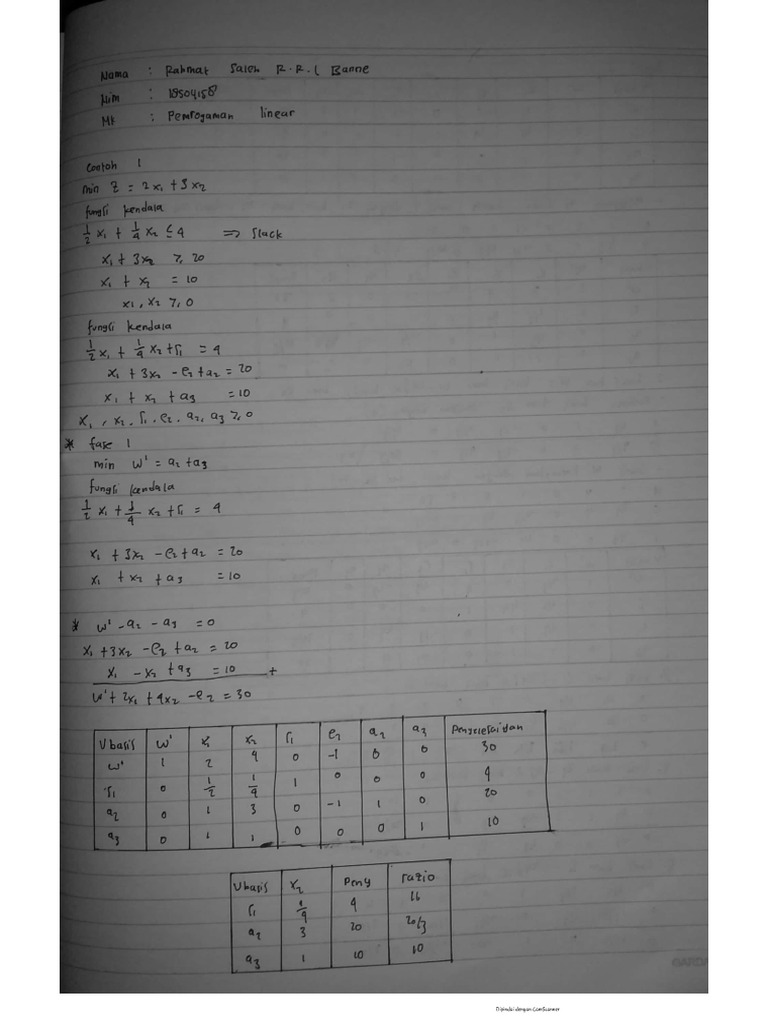 Nama : Rahmat Saleh R.R.L Banne
Nim : 18504158
Mk : Pemrogaman linear
Contoh 1
min Z = 2x₁ + 3x₂
fungsi kendala
1/2 x₁ + 1/4 x₂ ≤ 4 => Slack
x₁ + 3x₂ ≥ 20
x₁ + x₂ = 10
x₁, x₂ ≥ 0
fungsi kendala
1/2 x₁ + 1/4 x₂ + s₁ = 4
x₁ + 3x₂ - e₂ + a₂ = 20
x₁ + x₂ + a₃ = 10
x₁, x₂, s₁, e₂, a₂, a₃ ≥ 0
* fase 1
min w' = a₂ + a₃
fungsi kendala
1/2 x₁ + 1/4 x₂ + s₁ = 4
x₁ + 3x₂ - e₂ + a₂ = 20
x₁ + x₂ + a₃ = 10
* w' - a₂ - a₃ = 0
x₁ + 3x₂ - e₂ + a₂ = 20
x₁ - x₂ + a₃ = 10 +
w' + 2x₁ + 4x₂ - e₂ = 30
V basis w' x₁ x₂ s₁ e₂ a₂ a₃ Penyelesaian
w' 1 2 4 0 -1 0 0 30
s₁ 0 1/2 1/4 1 0 0 0 4
a₂ 0 1 3 0 -1 1 0 20
a₃ 0 1 1 0 0 0 1 10
V basis x₂ Peny rasio
s₁ 1/4 4 16
a₂ 3 20 20/3
a₃ 1 10 10
Dipindai dengan CamScanner